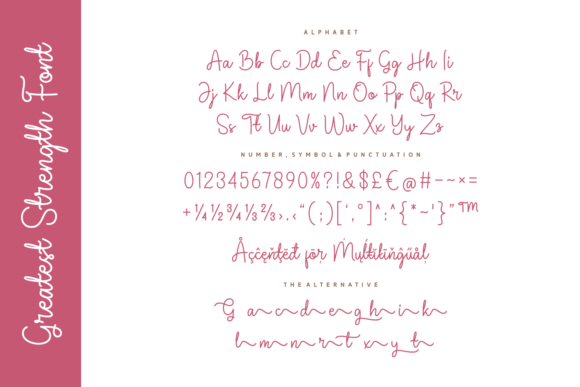 Greatest Strength Font
ALPHABET
Aa Bb Cc Dd Ee Ff Gg Hh Ii
Jj Kk Ll Mm Nn Oo Pp Qq Rr
Ss Tt Uu Vv Ww Xx Yy Zz
NUMBER, SYMBOL & PUNCTUATION
01234567890%?!&$£€@#-~×=
+¼½¾⅓⅔>.<“(;)[‘,°]^:^{*~'}”™
for
THE ALTERNATIVE
G a c d e g h i k
l m n r t x y t